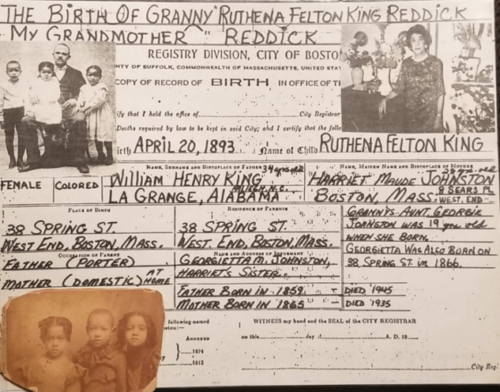 THE BIRTH OF GRANNY "RUTHENA FELTON KING REDDICK
MY GRANDMOTHER" REDDICK
REGISTRY DIVISION, CITY OF BOSTO
TY OF SUFFOLK, COMMONWEALTH OF MASSACHUSETTS, UNITED STAT
COPY OF RECORD OF BIRTH, IN OFFICE OF T
ify that I held the office of City Registrar
Deaths required by law to be kept in said City; and I certify that the follo
irth APRIL 20, 1893 Name of Child RUTHENA FELTON KING
NAME, SURNAME AND BIRTHPLACE OF FATHER
NAME, MAIDEN NAME AND BIRTHPLACE OF MOTHER
FEMALE COLORED WILLIAM HENRY KING HARRIET MAUDE JOHNSTON
LA GRANGE, ALABAMA BOSTON, MASS. WEST. END
PLACE OF BIRTH RESIDENCE OF PARENTS
GRANNY'S AUNT, GEORGIE
38 SPRING ST. 38 SPRING ST. JOHNSTON WAS 19 yrs old
WEST END, BOSTON, MASS. WEST END, BOSTON, MASS. WHEN SHE BORN.
OCCUPATION OF PARENT NAME AND ADDRESS OF INFORMANT
FATHER (PORTER) GEORGIETTA M. JOHNSTON, GEORGIETTA WAS ALSO BORN ON
MOTHER (DOMESTIC) AT HOME HARRIET'S SISTER. 38 SPRING ST. in 1866.
FATHER BORN IN 1859 - DIED 1945
MOTHER BORN IN 1865 - DIED 1935
following award
WITNESS my hand and the SEAL of the CITY REGISTRAR
on this day of A. D. 19
City Reg